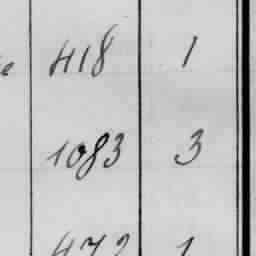 418 1
1083 3
472 1